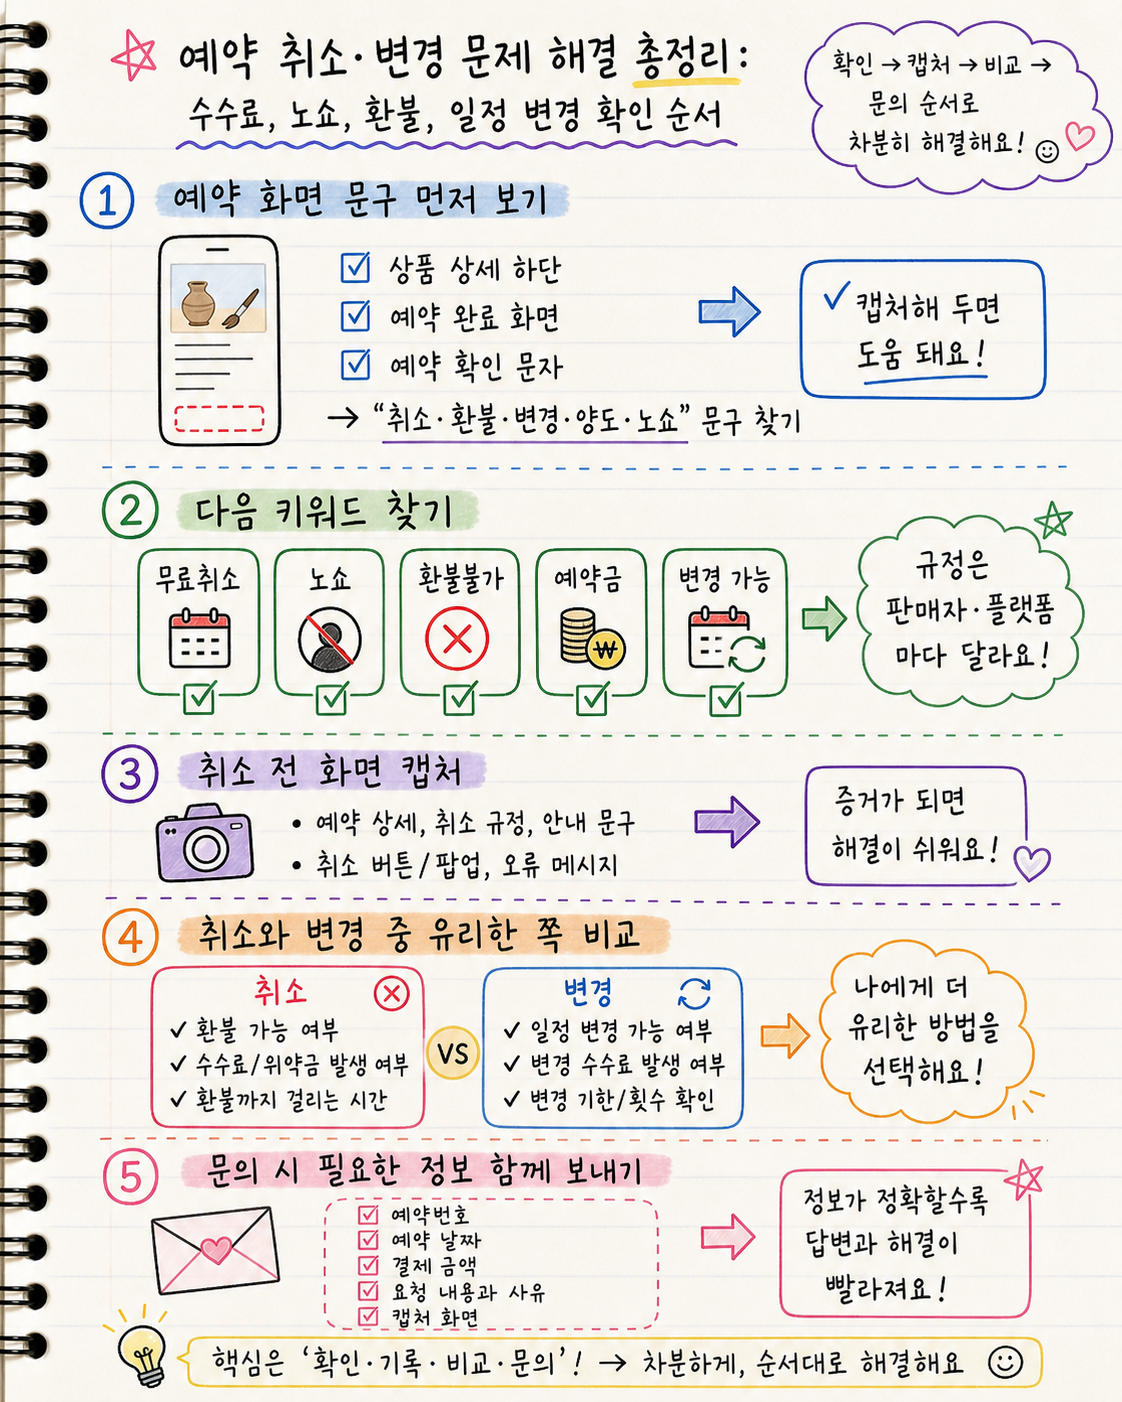 예약 취소·변경 문제 해결 총정리:
수수료, 노쇼, 환불, 일정 변경 확인 순서
확인 → 캡처 → 비교 →
문의 순서로
차분히 해결해요!
1 예약 화면 문구 먼저 보기
상품 상세 하단
예약 완료 화면
예약 확인 문자
→ “취소·환불·변경·양도·노쇼” 문구 찾기
캡처해 두면
도움 돼요!
2 다음 키워드 찾기
무료취소
노쇼
환불불가
예약금
₩
변경 가능
규정은
판매자·플랫폼
마다 달라요!
3 취소 전 화면 캡처
• 예약 상세, 취소 규정, 안내 문구
• 취소 버튼/팝업, 오류 메시지
증거가 되면
해결이 쉬워요!
4 취소와 변경 중 유리한 쪽 비교
취소
✓ 환불 가능 여부
✓ 수수료/위약금 발생 여부
✓ 환불까지 걸리는 시간
VS
변경
✓ 일정 변경 가능 여부
✓ 변경 수수료 발생 여부
✓ 변경 기한/횟수 확인
나에게 더
유리한 방법을
선택해요!
5 문의 시 필요한 정보 함께 보내기
예약번호
예약 날짜
결제 금액
요청 내용과 사유
캡처 화면
정보가 정확할수록
답변과 해결이
빨라져요!
핵심은 ‘확인·기록·비교·문의’! → 차분하게, 순서대로 해결해요